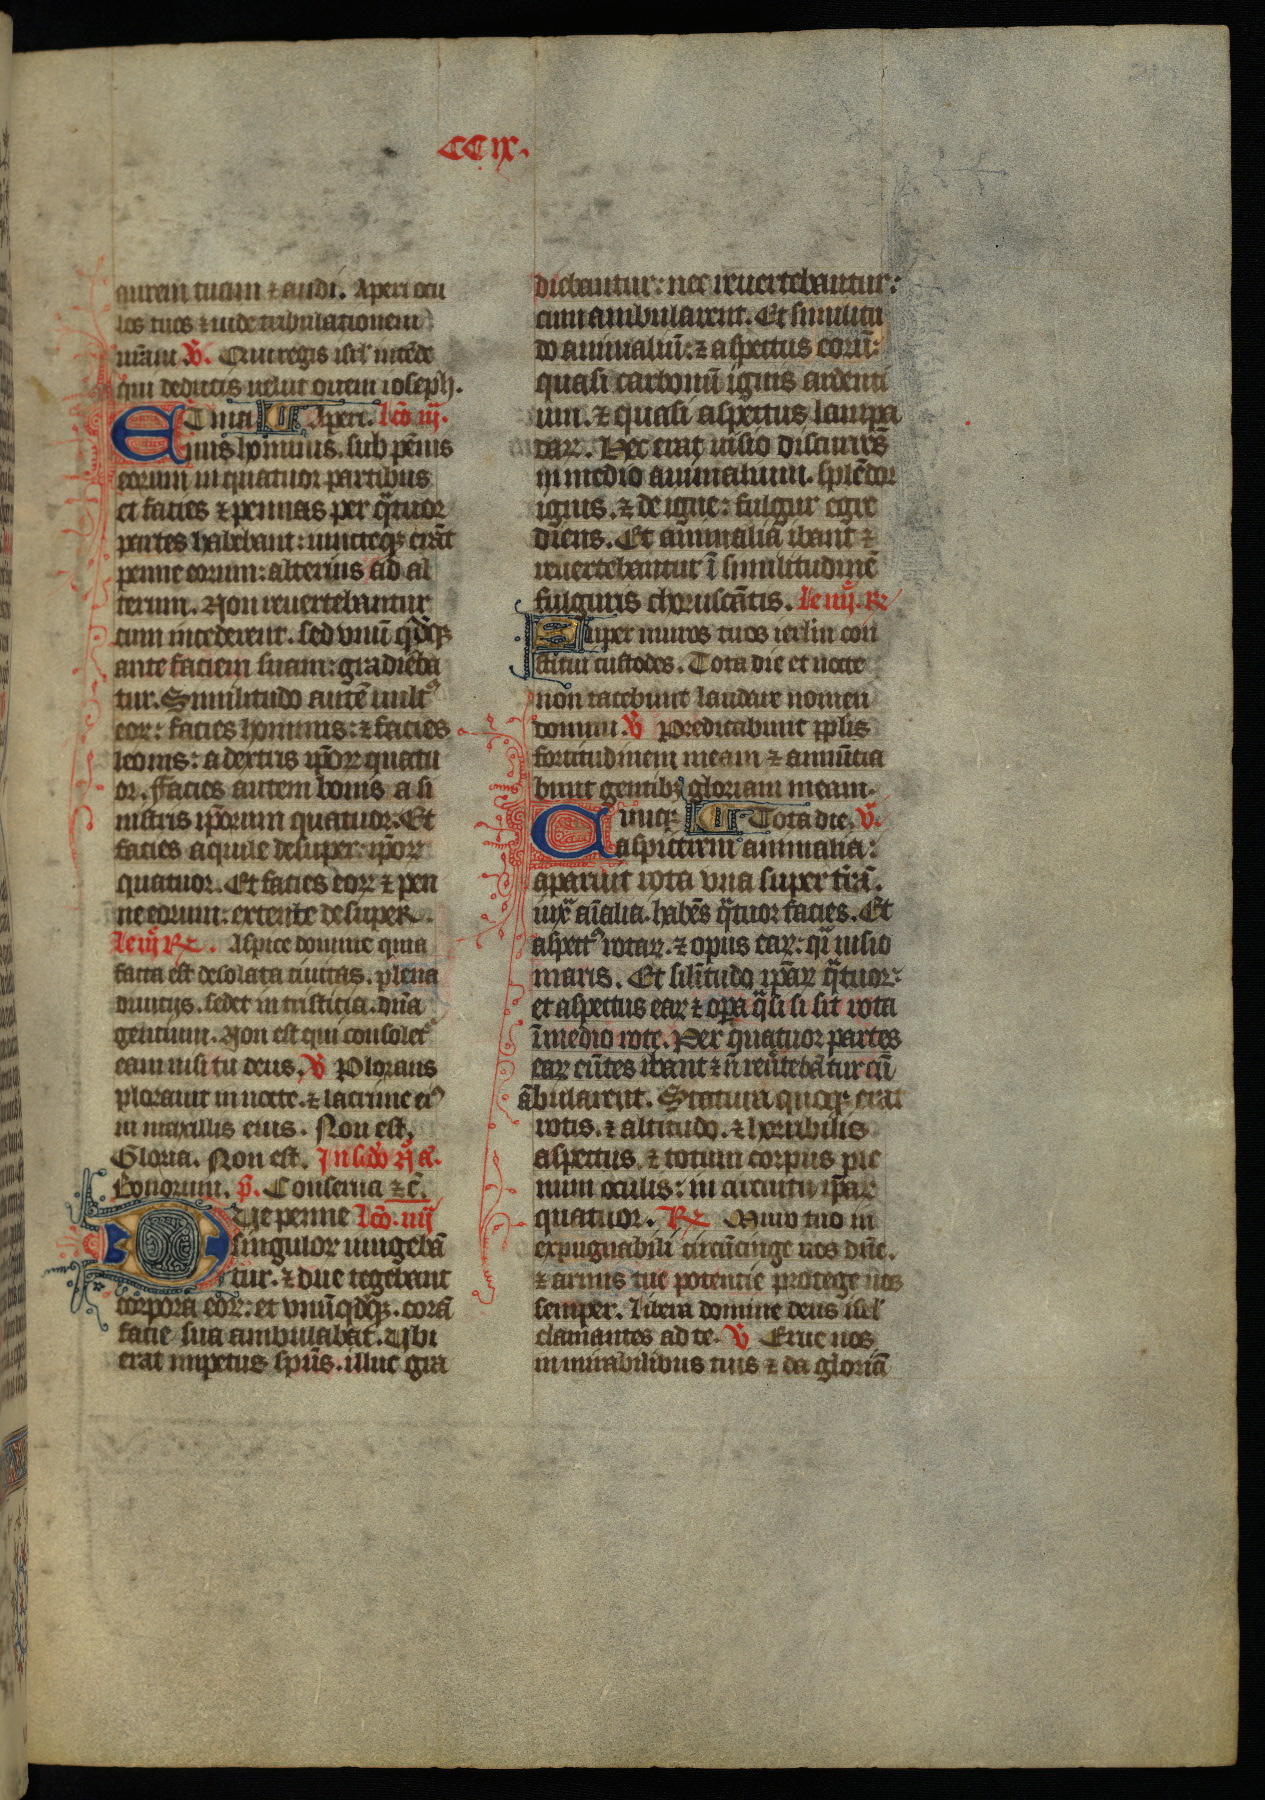 CCIX.
aurem tuam ⁊ audi. Aperi ocu
los tuos ⁊ uide tribulationem
nr̄am V̄. Qui regis isrl̄ intēde
qui deducis uelut ouem ioseph.
ET ma Aperi. lcō iij.
nus hominis. sub pēnis
eorum in quatuor partibus
et facies ⁊ pennas per q̄tuor
partes habebant: iuncteqꝫ erāt
penne eorum: alterius ad al
terum. Non reuertebantur
cum incederent. sed vnū qd̄qꝫ
ante faciem suam: gradieba
tur. Similitudo autē uult᷒
eoꝝ: facies hominis: ⁊ facies
leonis: a dextris ip̄oꝝ quatu
or. Facies autem bouis a si
nistris ip̄orum quatuor. Et
facies aquile desuper ip̄oꝝ
quatuor. Et facies eoꝝ ⁊ pen
ne eorum: extente desuper.
Aspice domine quia
facta est desolata ciuitas. plena
diuitijs. sedet in tristicia. dn̄a
gentium. Non est qui consolet᷒
eam nisi tu deus. V̄ Plorans
plorauit in nocte. ⁊ lacrime ei᷒
in maxillis eius. Non est.
Gloria. Non est.
p̄. Conserua ⁊c̄.
Due penne lcō. iiij
singuloꝝ iungebā
tur. ⁊ due tegebant
corpora eoꝝ: et vnūqd̄qꝫ. corā
facie sua ambulabat. Ubi
erat impetus sp̄us. illuc gra
diebantur: nec reuertebantur:
cum ambularent. Et similitu
do animaliū: ⁊ aspectus eorū:
quasi carbonū ignis ardenti
um. ⁊ quasi aspectus lampa
daꝝ. Hec erat uisio discurrēs
in medio animalium. splēdor
ignis. ⁊ de igne: fulgur egre
diens. Et animalia ibant ⁊
reuertebantur ī similitudinē
fulguris choruscātis. le iiij. R̄
Super muros tuos ierlm̄ con
stitui custodes. Tota die et nocte
non tacebunt laudare nomen
domini. V̄ Predicabunt pplis
fortitudinem meam ⁊ annūcia
bunt gentibꝫ gloriam meam.
Tota die. V̄.
aspicerem animalia:
aparuit rota vna super trā.
iuxͣ aīalia. habēs q̄tuor facies. Et
aspect᷒ rotaꝝ. ⁊ opus eaꝝ: qͣ uisio
maris. Et sil̄itudo ip̄aꝝ q̄tuor:
et aspectus eaꝝ ⁊ opa q̄si si sit rota
ī medio rote. Per quatuor partes
eaꝝ eūtes ibant ⁊ n̄ reūtebātur cū
ābularent. Statura quoqꝫ erat
rotis. ⁊ altitudo. ⁊ horribilis
aspectus. ⁊ totum corpus ple
num oculis: in circuitu ip̄aꝝ
quatuor. R̄ Muro tuo in
expugnabili circūcinge nos dn̄e.
⁊ armis tue potentie protege nos
semper. Libera domine deus isrl̄
clamantes ad te. V̄ Erue nos
in mirabilibus tuis ⁊ da gloriā